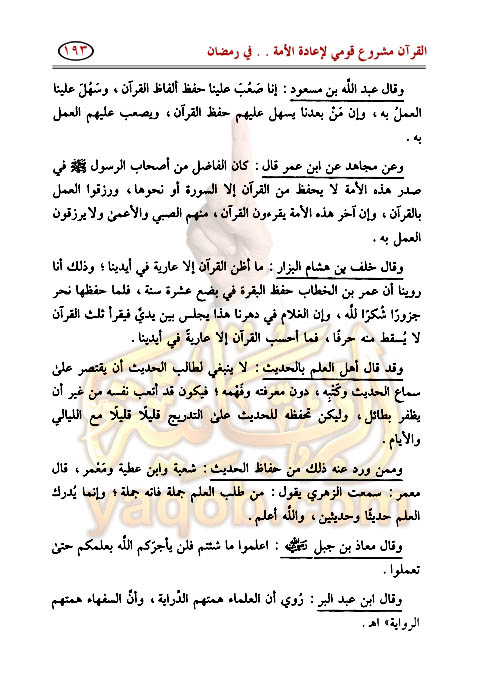 القرآن مشروع قومي لإعادة الأمة . . في رمضان
١٩٣
وقال عبد اللَّه بن مسعود : إنا صَعُبَ علينا حفظ ألفاظ القرآن ، وسَهُلَ علينا
العملُ به ، وإن مَنْ بعدنا يسهل عليهم حفظ القرآن ، ويصعب عليهم العمل
به .
وعن مجاهد عن ابن عمر قال : كان الفاضل من أصحاب الرسول ﷺ في
صدر هذه الأمة لا يحفظ من القرآن إلا السورة أو نحوها ، ورزقوا العمل
بالقرآن ، وإن آخر هذه الأمة يقرءون القرآن ، منهم الصبي والأعمىٰ ولا يرزقون
العمل به .
وقال خلف بن هشام البزار : ما أظن القرآن إلا عارية في أيدينا ؛ وذلك أنا
روينا أن عمر بن الخطاب حفظ البقرة في بضع عشرة سنة ، فلما حفظها نحر
جزورًا شكرًا للَّه ، وإن الغلام في دهرنا هذا يجلس بين يديَّ فيقرأ ثلث القرآن
لا يُسقط منه حرفًا ، فما أحسب القرآن إلا عاريةً في أيدينا .
وقد قال أهل العلم بالحديث : لا ينبغي لطالب الحديث أن يقتصر علىٰ
سماع الحديث وكَتْبِه ، دون معرفته وفَهْمه ؛ فيكون قد أتعب نفسه من غير أن
يظفر بطائل ، وليكن تحفظه للحديث علىٰ التدريج قليلًا قليلًا مع الليالي
والأيام .
وممن ورد عنه ذلك من حفاظ الحديث : شعبة وابن عطية ومَعْمر ، قال
معمر : سمعت الزهري يقول : من طلب العلم جملة فاته جملة ؛ وإنما يُدرك
العلم حديثًا وحديثين ، واللَّه أعلم .
وقال معاذ بن جبل رضي الله عنه : اعلموا ما شئتم فلن يأجركم اللَّه بعلمكم حتىٰ
تعملوا .
وقال ابن عبد البر : رُوي أن العلماء همتهم الدِّراية ، وأنَّ السفهاء همتهم
الرواية» اهـ .
yaqob.com